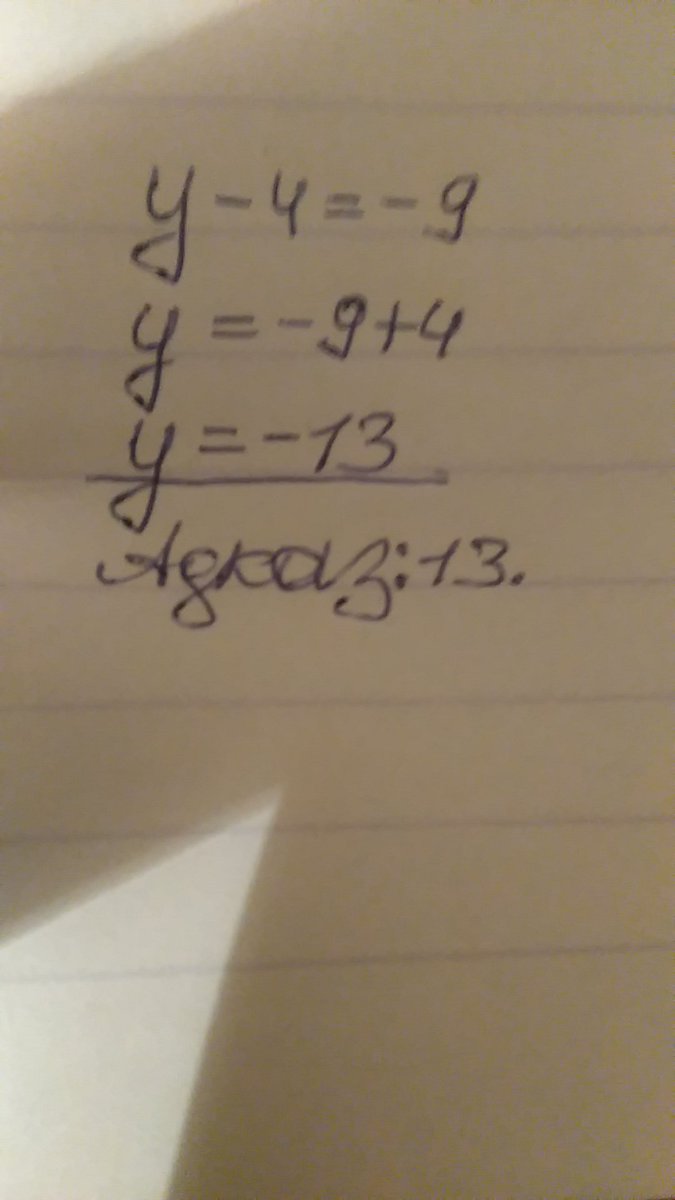 y - 4 = - 9
y = - 9 + 4
y = - 13
Адказ: 13.